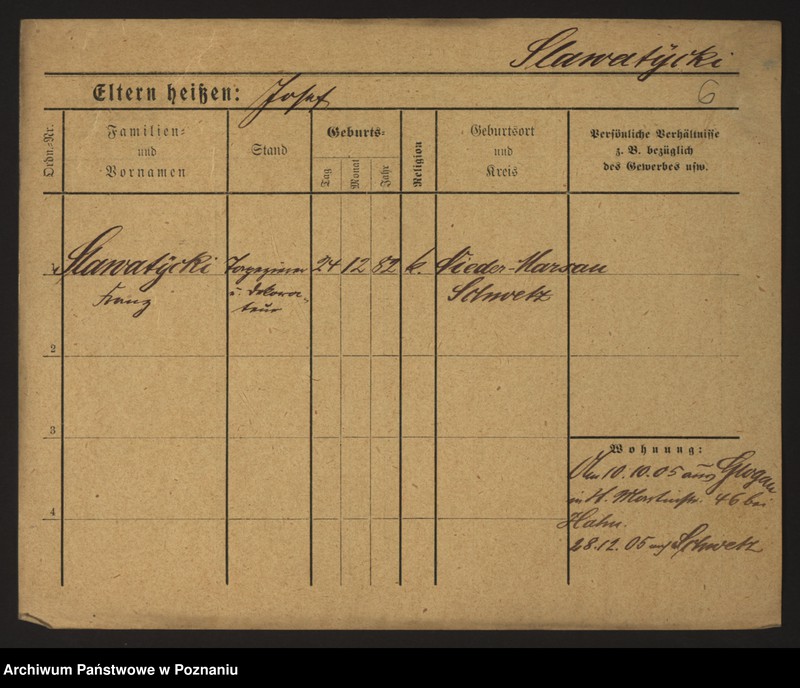 Slawatÿcki
6
Eltern heißen: Josef
Ordn.-Nr.
Familien-
und
Vornamen
Stand
Geburts-
Tag
Monat
Jahr
Religion
Geburtsort
und
Kreis
Persönliche Verhältnisse
z. B. bezüglich
des Gewerbes usw.
1 Slawatÿcki Tapezierer 24 12 82 k. Nieder-Marsau
Franz u. Dekora- Schwetz
teur
2
3
Wohnung:
Am 10.10.05 aus Glogau
in St. Martinstr. 46 bei
4
Hahn.
28.12.05 nach Schwetz
Archiwum Państwowe w Poznaniu